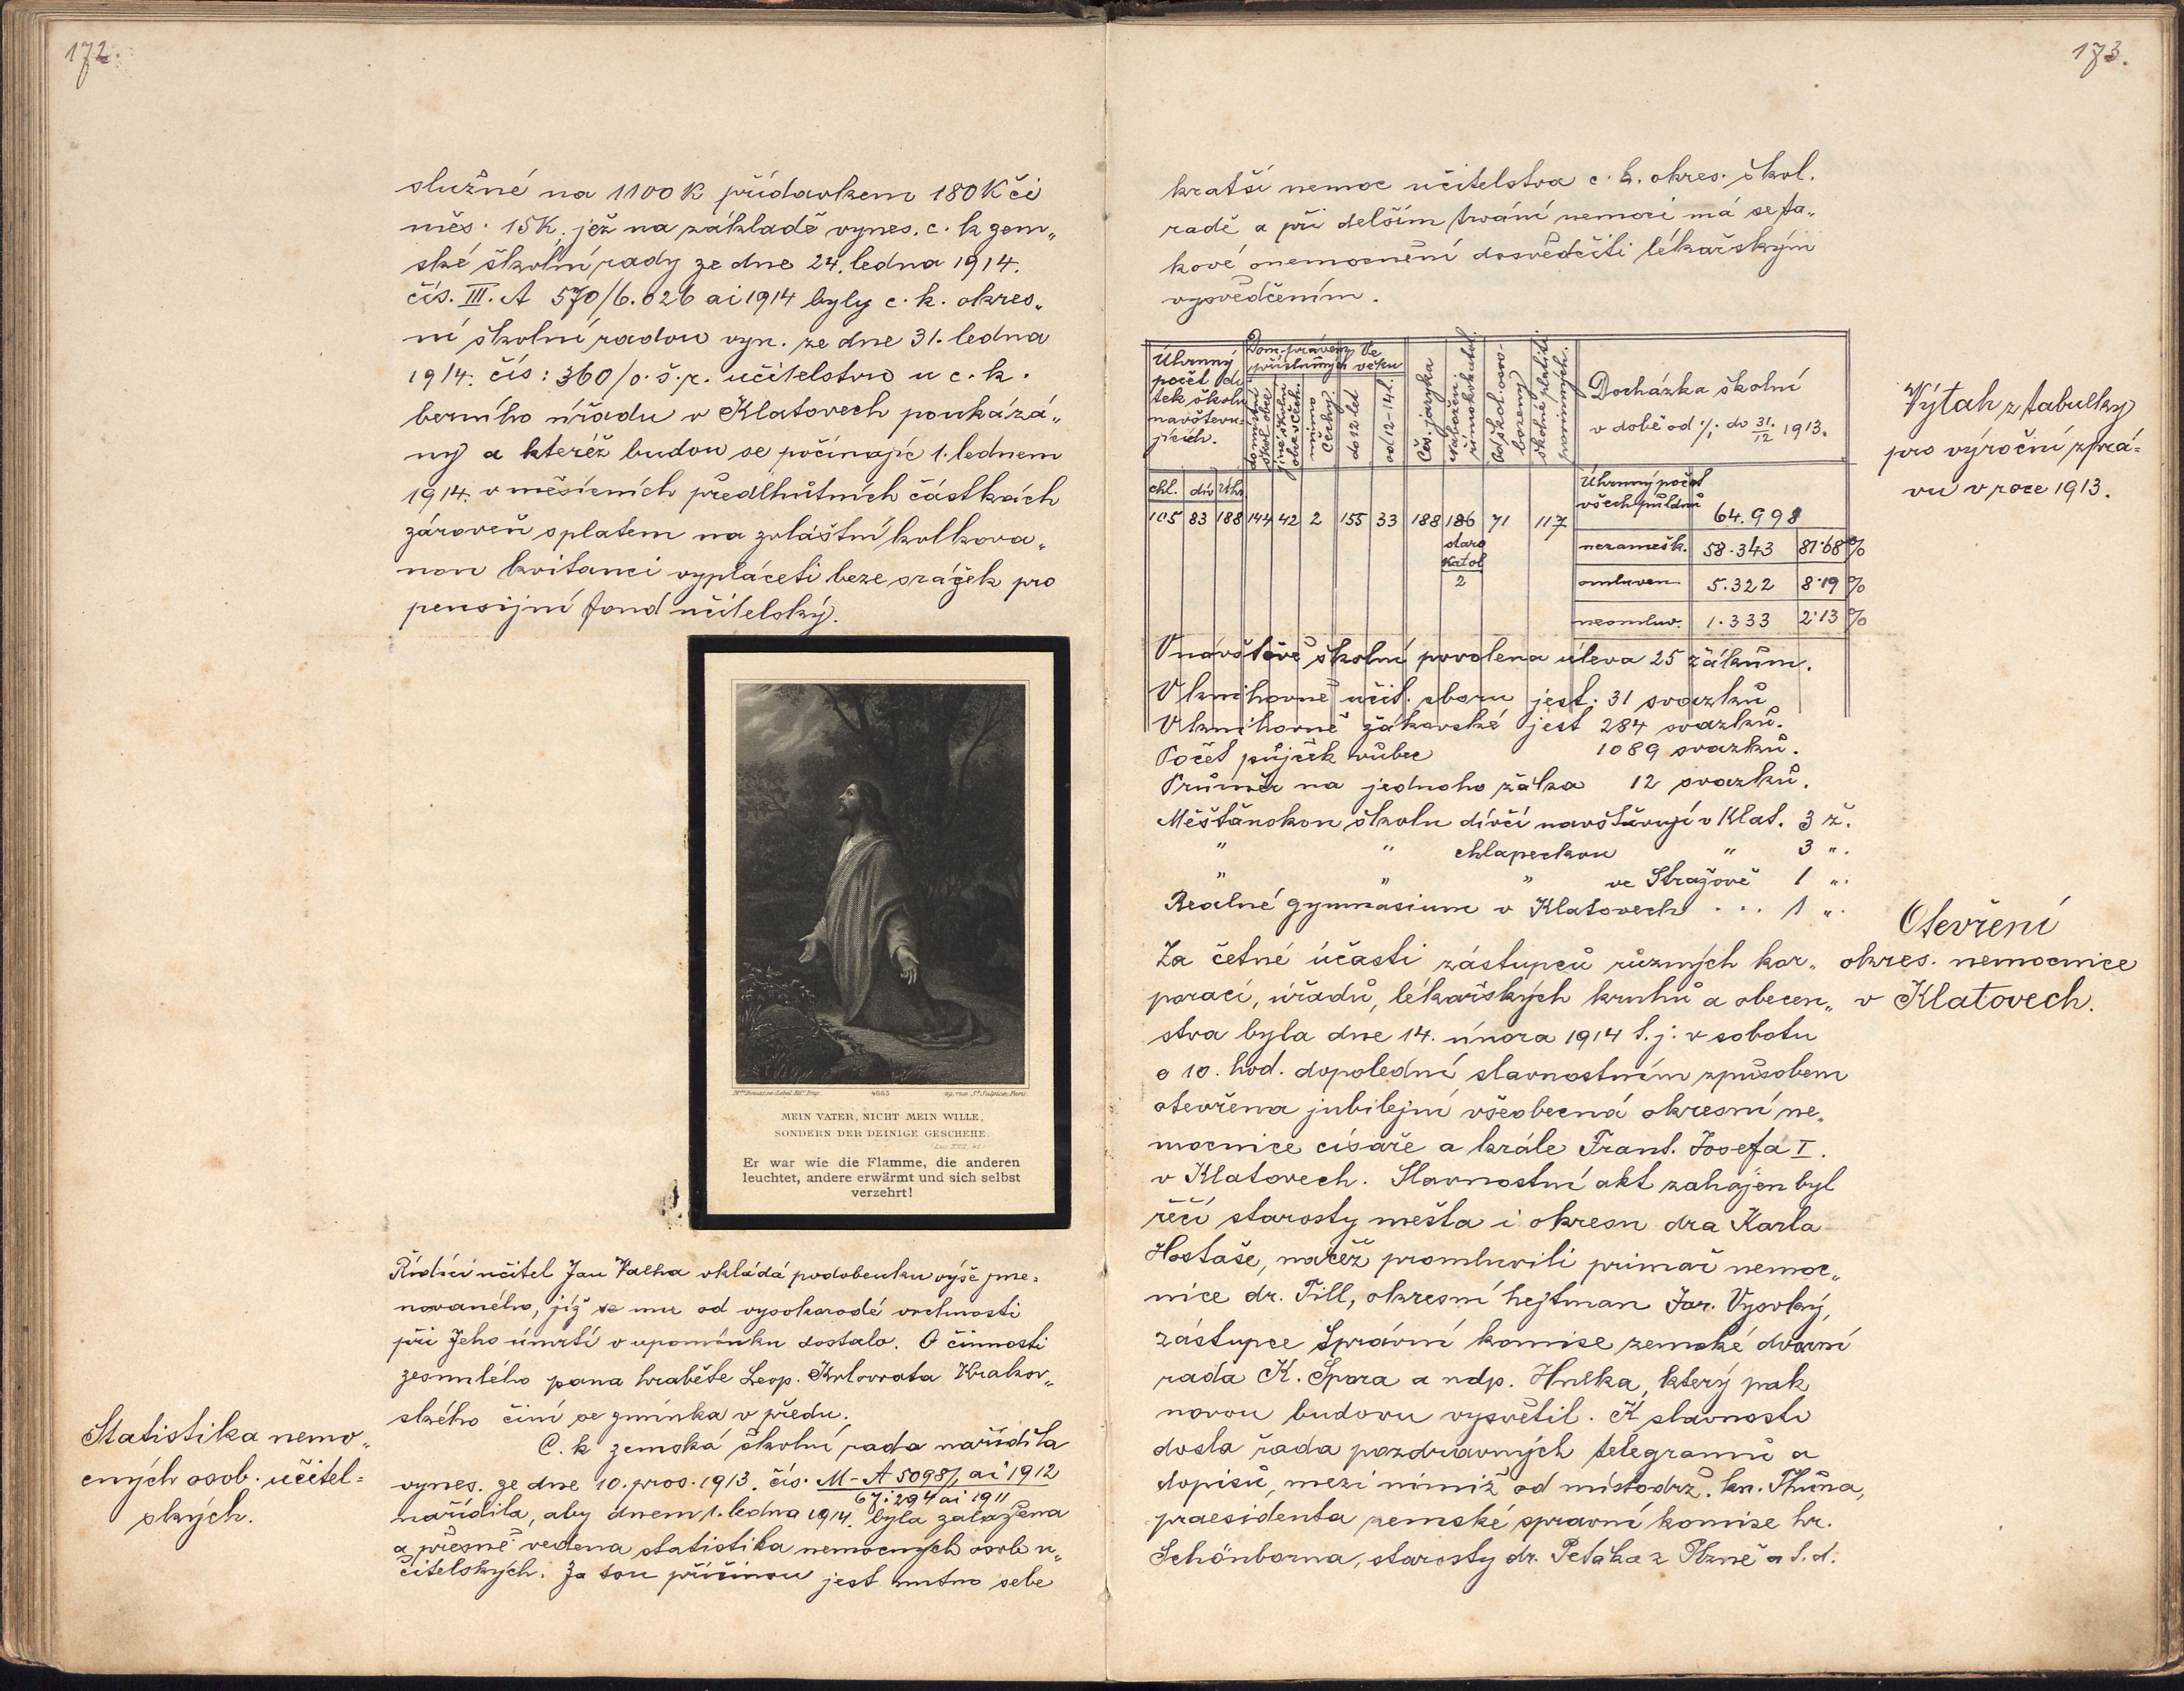 172.
služné na 1100 K přídavkem 180 K či
měs. 15 K, jež na základě vynes. c. k. zem„
ské školní rady ze dne 24. ledna 1914.
čís. III. A 570/6.026 ai 1914 byly c. k. okres„
ní školní radou vyn. ze dne 31. ledna
1914. čís: 360/o.š.r. učitelstvu u c. k.
berního úřadu v Klatovech poukázá„
ny a kteréž budou se počínajíc 1. lednem
1914. v měsíčních předlhůtních částkách
zároveň s platem na zvláštní kolkova„
nou kvitanci vypláceti beze srážek pro
pensijní fond učitelský.
4663
MEIN VATER, NICHT MEIN WILLE,
SONDERN DER DEINIGE GESCHEHE.
Er war wie die Flamme, die anderen
leuchtet, andere erwärmt und sich selbst
verzehrt!
Řídící učitel Jan Valha vkládá podobenku výše jme=
novaného, jíž se mu od vysokorodé vrchnosti
při Jeho úmrtí v upomínku dostalo. O činnosti
zesnulého pana hraběte Leop. Kolovrata Krakov„
ského činí se zmínka v předu.
Statistika nemo„
cných osob. učitel=
ských.
C. k zemská školní rada nařídila
vynes. ze dne 10. pros. 1913. čís. M-A 50987, ai 1912
67.294 ai 1911
nařídila, aby dnem 1. ledna 1914. byla založena
a přesně vedena statistika nemocných osob u„
čitelských. Za tou příčinou jest nutno sebe
173.
kratší nemoc učitelstva c. k. okres. škol.
radě a při delším trvání nemoci má se ta„
kové onemocnění dosvědčiti lékařským
vysvědčením.
Výtah z tabulky
pro výroční zprá=
vu v roce 1913.
Úhrnný
počet dí
tek školu
navštěvu=
jících.
Dom. právem
příslušných
domácí
škol. obce
jiné školní
obce v Čech.
mimo
Čechy
Ve
věku
do 12 let
od 12-14 l.
Čes. jazyka
Nábožen.
římskokatol.
Od škol. osvo-
bozeny
školné platiti
povinných.
Docházka školní
v době od 1/1 do 31/12 1913.
chl. dív Úhr.
105 83 188 144 42 2 155 33 188 186 71 117
staro
katol
2
Úhrnný počet
všech půldnů 64.998
nezamešk. 58.343 87·68 %
omluven 5.322 8·19 %
neomluv. 1.333 2·13 %
V návštěvě školní povolena úleva 25 žákům.
V knihovně učit. sboru jest: 31 svazků
V knihovně žákovské jest 284 svazků.
Počet půjček vůbec 1089 svazků.
Průměr na jednoho žáka 12 svazků.
Měšťanskou školu dívčí navštěvují v Klat. 3 ž.
" " chlapeckou " 3 ".
" " " ve Strážově 1 ".
Reálné gymnasium v Klatovech ... 1 ".
Otevření
okres. nemocnice
v Klatovech.
Za četné účasti zástupců různých kor„
porací, úřadů, lékařských kruhů a obecen„
stva byla dne 14. února 1914 t. j. v sobotu
o 10. hod. dopolední slavnostním způsobem
otevřena jubilejní všeobecná okresní ne„
mocnice císaře a krále Frant. Josefa I.
v Klatovech. Slavnostní akt zahájen byl
řečí starosty města i okresu dra Karla
Hostaše, načež promluvili primář nemoc„
nice dr. Till, okresní hejtman Jar. Vysoký,
zástupce Správní komise zemské dvorní
rada K. Spora a ndp. Hnělka, který pak
novou budovu vysvětil. K slavnosti
došla řada pozdravných telegramů a
dopisů, mezi nimiž od místodrž. kn. Thůna,
praesidenta zemské správní komise hr.
Schönborna, starosty dr. Petáka z Plzně a t. d.